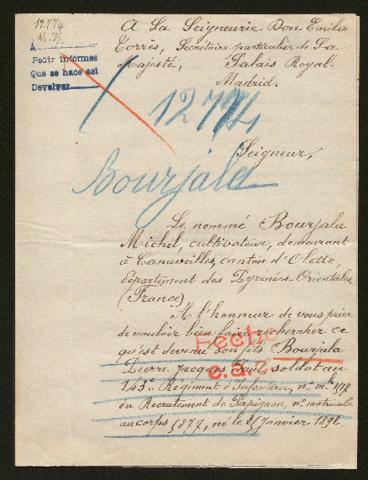 12.774
A
Pedir informes
Que se hace asi
Devolver
A La Seigneurie Don Emilio
Torrès, Secrétaire particulier de Sa
Majesté, Palais Royal
Madrid.
12774
Seigneur,
Bourjala
Le nommé Bourjala
Michel, cultivateur, demeurant
à Canaveilles, canton d'Olette,
département des Pyrénées-Orientales,
(France)
A l'honneur de vous prier
de vouloir bien faire rechercher ce
qu'est devenu son fils Bourjala
Pierre Jacques soldat au
143e Régiment d'Infanterie, n° mle
du Recrutement de Perpignan, n° matricule
au corps 5877, né le janvier 1892
Fecho